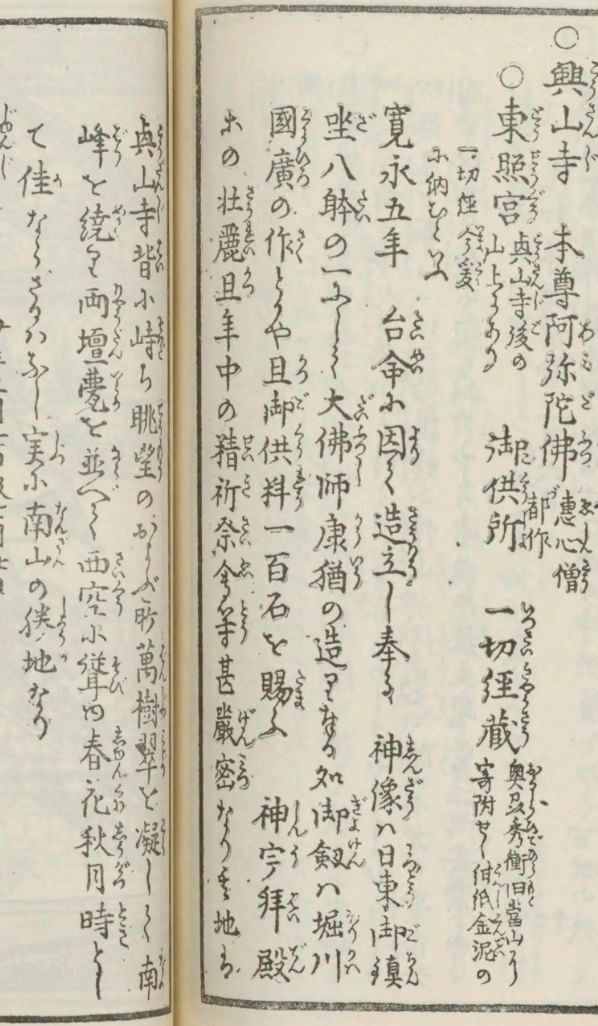 ○興山寺 本尊阿弥陀佛 惠心僧都作
○東照宮 興山寺後の山上にあり 御供所 一切経蔵 奥州秀衡旧當山に寄附せし紺紙金泥の
一切経今爰に納むといふ
寛永五年 台命に因て造立し奉る 神像ハ日東御鎮
坐八躰の一にして大佛師康猶の造る 如御劔ハ堀川
國廣の作とかや且御供料一百石を賜ふ 神宇拜殿
等の壮麗且年中の精祈祭会等甚嚴密なり 其地は
興山寺背に峙ち眺望のおよぶ所萬樹翠を凝して南
峰を繞り両壇甍を並へて西空に聳ゆ春花秋月時とし
て佳ならさるハなし実に南山の勝地なり